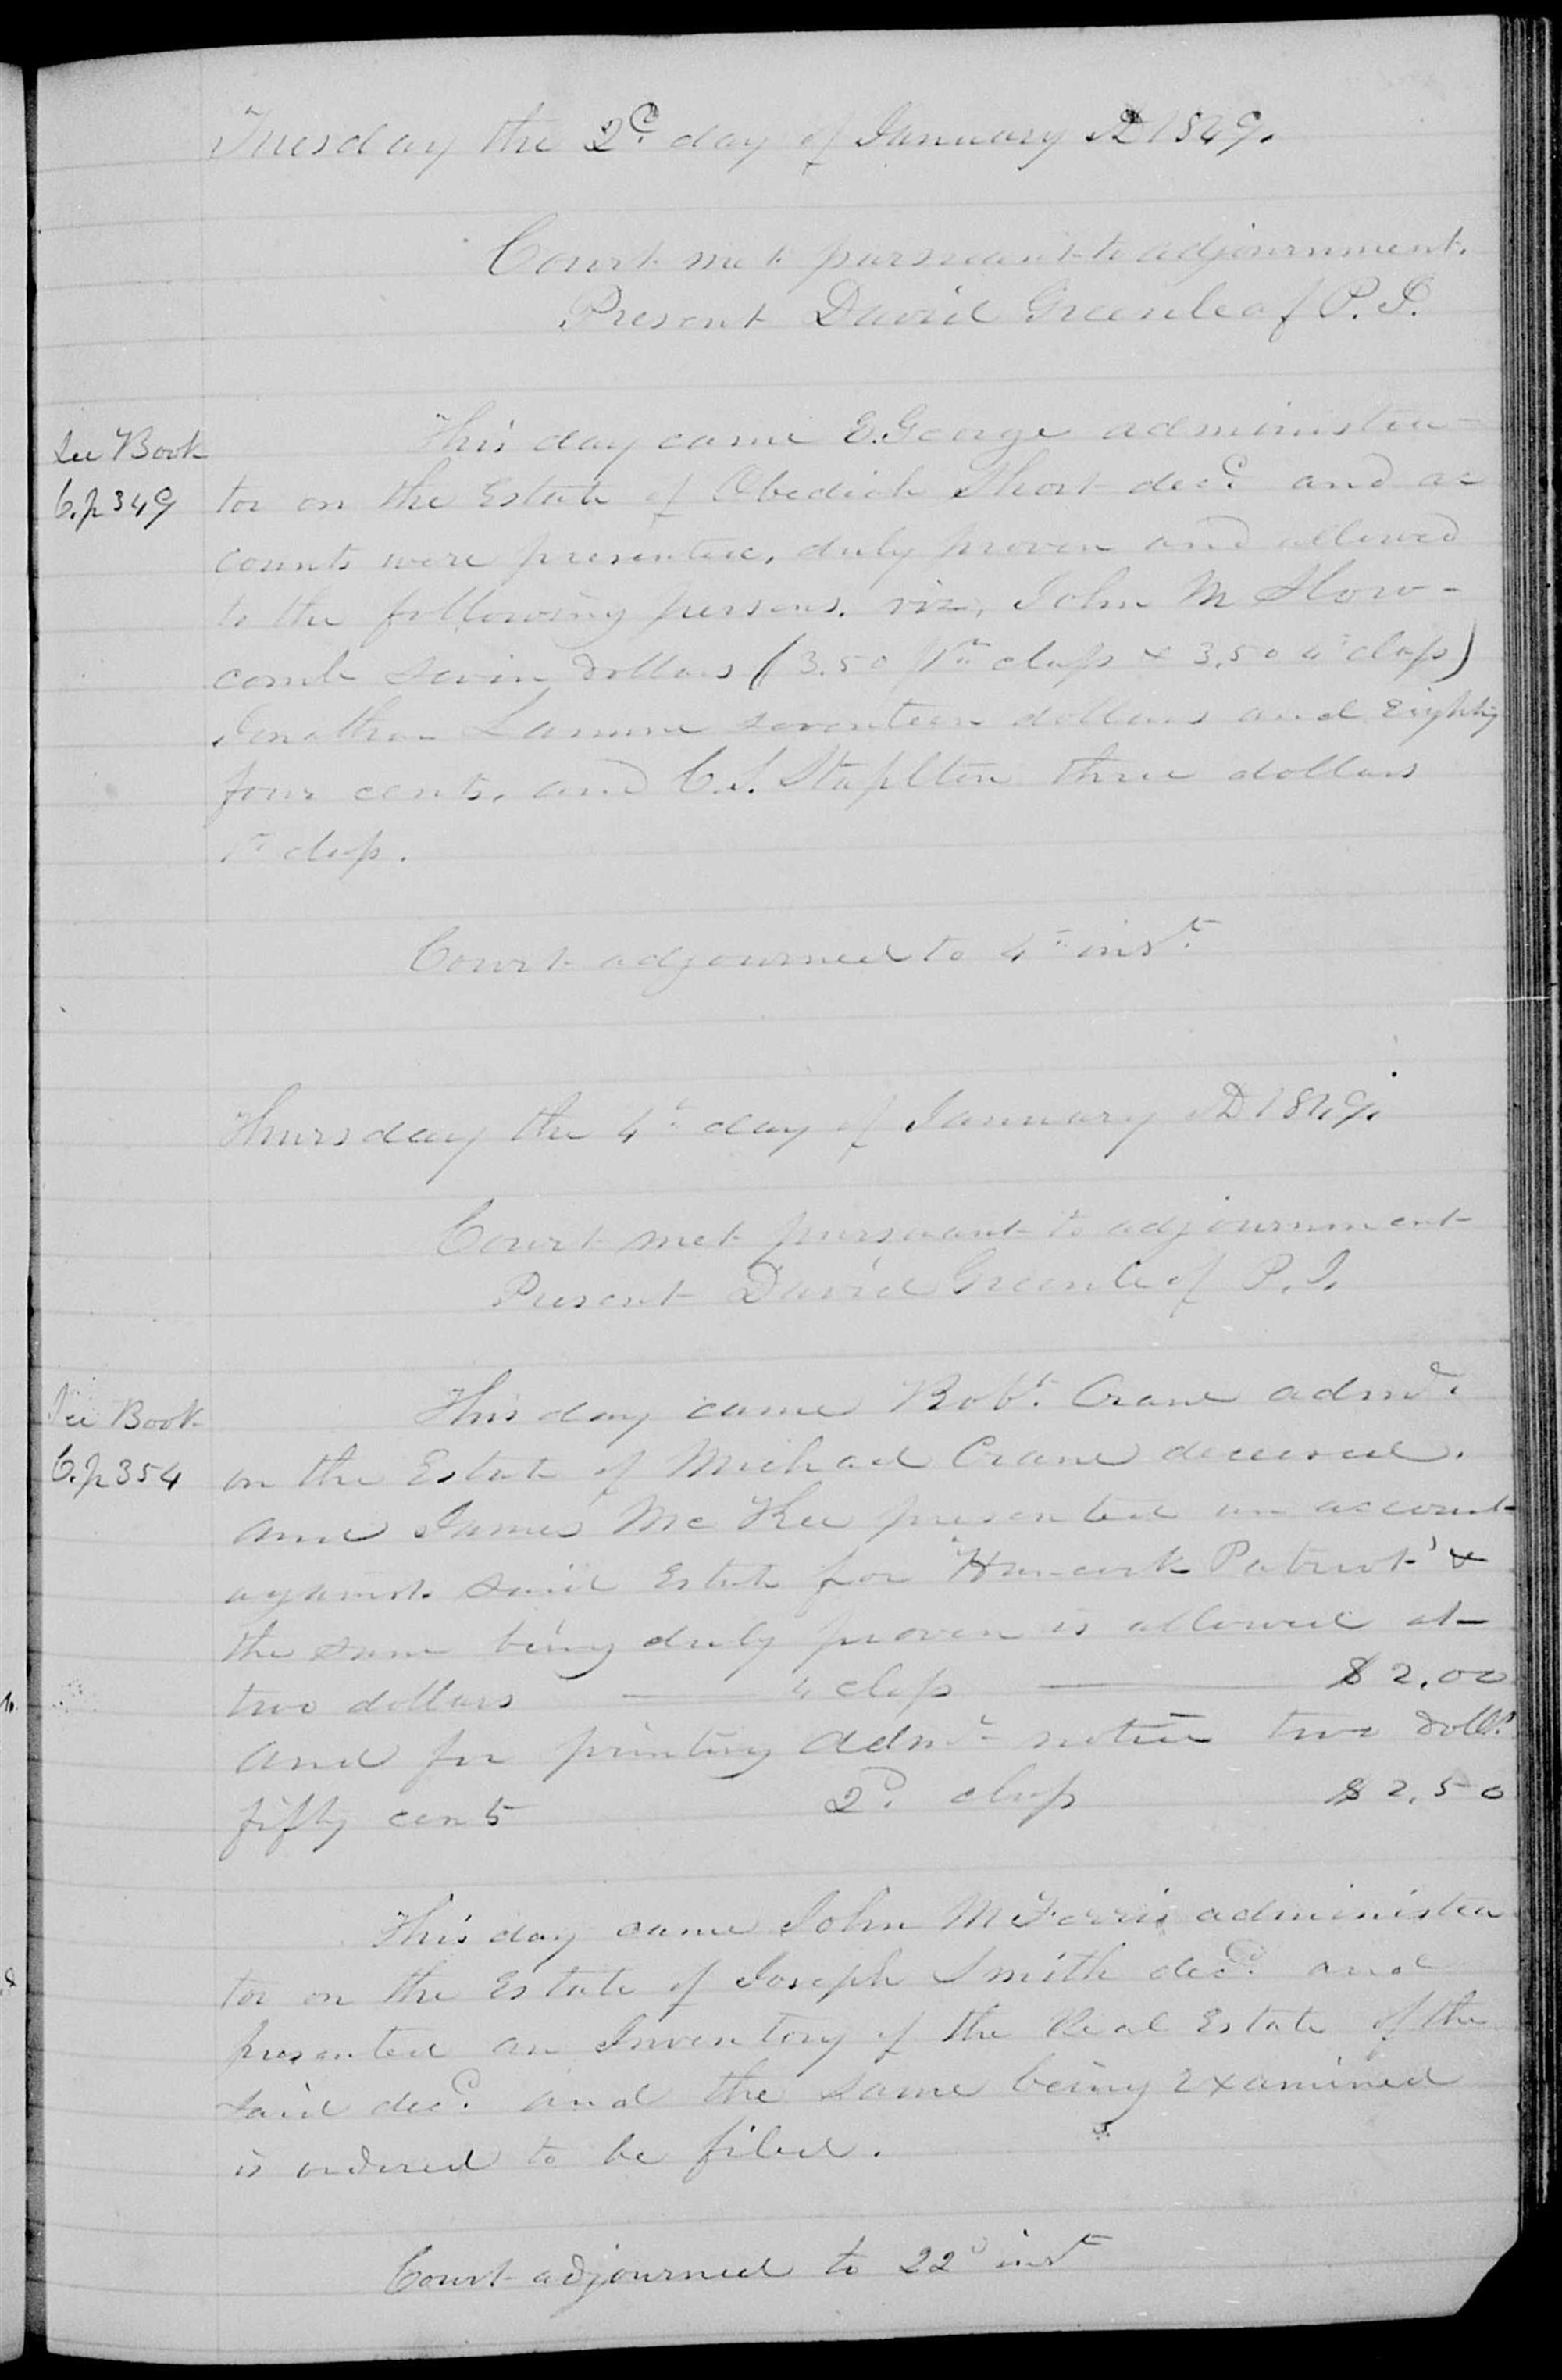 Tuesday the 2d. day of January AD 1849.
Court met pursuant to adjournment.
Present David Greenleaf P. J.
See Book
C. p 349
This day came E. George administra-
tor on the Estate of Obediah Short decd. and ac-
counts were presented, duly proven and allowed
to the following persons. viz, John M Slow-
comb seven dollars (3.50 1st class & 3.50 4th class)
Jonathan Lamme seventeen dollars and Eighty
four cents, and C. S. Staplton three dollars
1st class.
Court adjourned to 4th inst.
Thursday the 4th day of January AD 1849.
Court met pursuant to adjournment
Present David Greenleaf P. J.
See Book
C. p 354
This day came Robt. Crane admr.
on the Estate of Michael Crane deceased.
and James Mc Kee presented an account
against said Estate for "Hancock Patriot" &
the same being duly proven is allowed at
two dollars — 4 class — $2.00
and for printing admr. notice two dolls.
fifty cents 2d. class $2.50
This day came John M Ferris administra
tor on the Estate of Joseph Smith decd. and
presented an Inventory of the Real Estate of the
said decd. and the same being Examined
is ordered to be filed.
Court adjourned to 22d inst